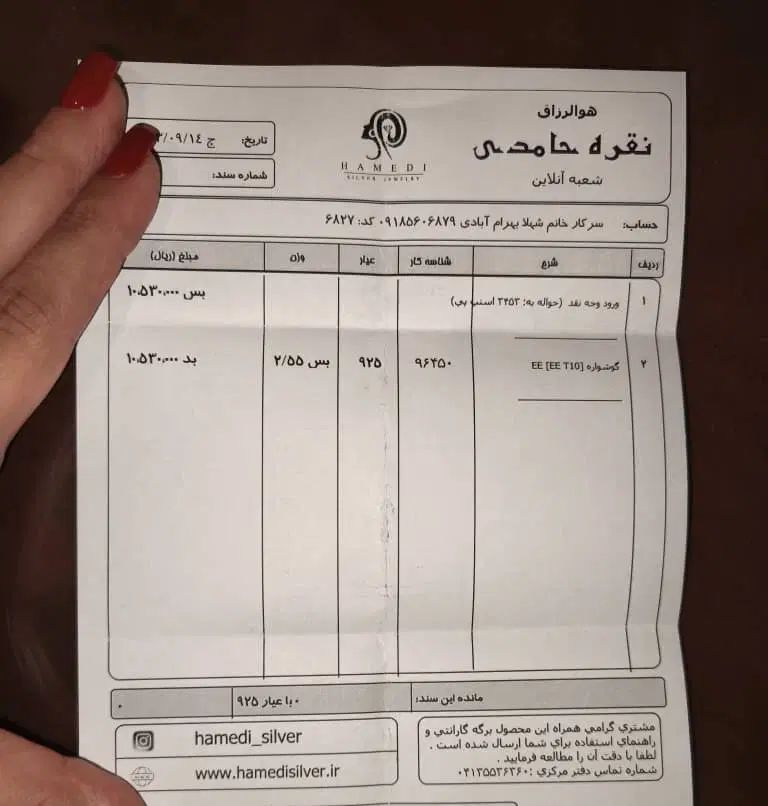 هوالرزاق
نقره حامدی
شعبه آنلاین
HAMEDI
SILVER JEWELRY
تاریخ: ج ۳/۰۹/۱۴
شماره سند:
حساب: سرکار خانم شهلا بهرام آبادی ۰۹۱۸۵۶۰۶۸۷۹ کد: ۶۸۲۷
ردیف شرح شناسه کار عیار وزن مبلغ (ریال)
۱ ورود وجه نقد (حواله به: ۳۴۵۳ اسنپ پی) بس ۱۰،۵۳۰،۰۰۰
۲ گوشواره EE [EE T10] ۹۶۴۵۰ ۹۲۵ بس ۲/۵۵ بد ۱۰،۵۳۰،۰۰۰
مانده این سند: ۰ با عیار ۹۲۵ ۰
مشتري گرامي همراه اين محصول برگه گارانتي و
راهنماي استفاده براي شما ارسال شده است .
لطفا با دقت آن را مطالعه فرماييد .
شماره تماس دفتر مرکزي : ۰۴۱۳۵۵۳۶۳۶۰
hamedi_silver
www.hamedisilver.ir